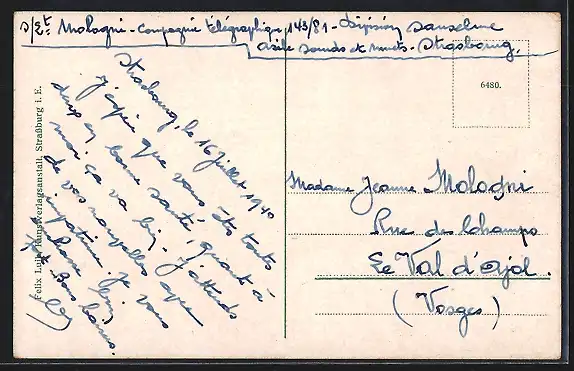 S/Lt. Mologni - Compagnie télégraphique 143/81 - Division Sanselme
Asile sourds et muets - Strasbourg.
Strasbourg, le 16 juillet 1940
J'espère que vous êtes toutes
deux en bonne santé, quant à
moi ça va bien. J'attends
de vos nouvelles avec
impatience. Je vous
embrasse bien
fort. Bons baisers.
6480.
Madame Jeanne Mologni
Rue des Champs
Le Val d'Ajol.
(Vosges)
Felix Luib, Kunstverlagsanstalt, Straßburg i. E.